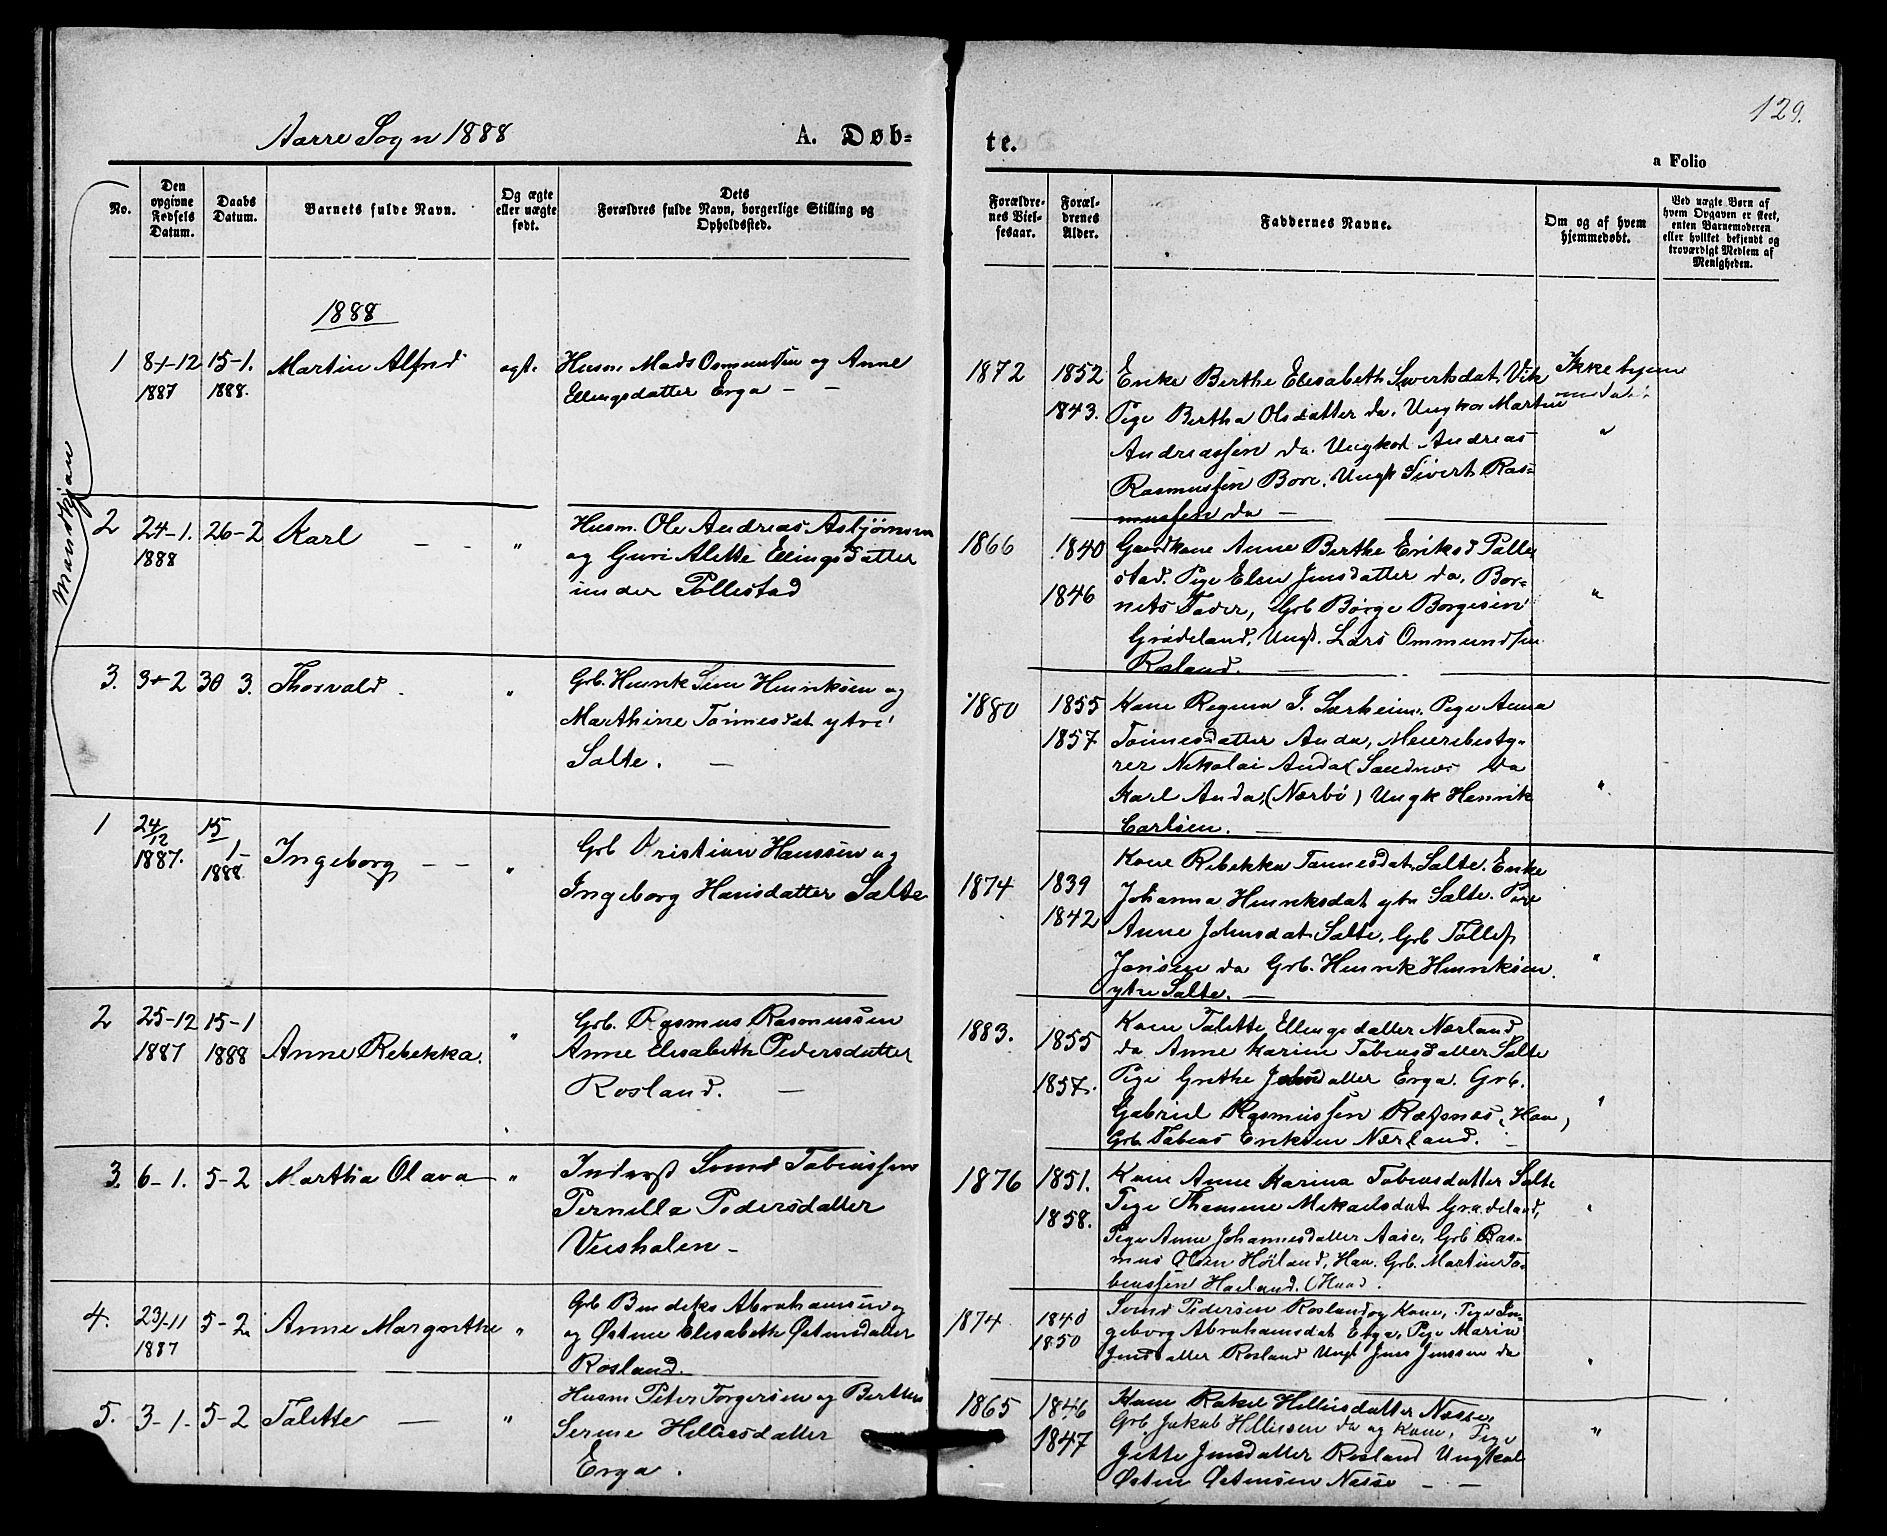 Aarre Sogn 1888
A. Døb-
te.
129.
a Folio
No.
Den opgivne Fødsels Datum.
Daabs Datum.
Barnets fulde Navn.
Og ægte eller uægte født.
Dets Forældres fulde Navn, borgerlige Stilling og Opholdssted.
Forældrenes Vielsesaar.
Forældrenes Alder.
Faddernes Navne.
Om og af hvem hjemmedøbt.
Ved uægte Børn af hvem Opgaven er skeet, enten Barnemoderen eller hvilket bekjendt og troværdigt Medlem af Menigheden.
Mandkjøn
1888
1 8-12 15-1. Martin Alfred ægt. Husm Mads Osmundsen og Anne
1887 1888. Ellingsdatter Erga - -
1872 1852 Enke Berthe Elisabeth Sivertsdat. Vik Ikke hjem
1843. Pige Bertha Olsdatter do, Ungkar Martin
Andreassen do. Ungkar Andreas "
Rasmussen Bore, Ungk Sivert Ras-
mussen do -
2 24-1. 26-2 Karl - - " Husm. Ole Andreas Asbjørnsen
1888 og Guri Alette Ellingsdatter
under Pollestad
1866 1840 Gaardkone Anne Berthe Eriksd Polle
1846 stad. Pige Elen Jensdatter do, Bar-
nets Fader, Grb Børge Borgesen "
Grødeland, Ungk. Lars Ommundsen
Rosland. -
3. 3-2 30 3. Thorvald " Grb. Henrik Sem Henriksen og
Marthine Tønnesdat ytre
Salte. -
1880 1855 Kone Regina T. Særheim. Pige Anna
1857 Tønnesdatter Anda, Meieribesty-
rer Nikolai Anda (Sandnes do
Karl Anda, (Nærbø) Ungk Henrik "
Carlsen. -
1 24/12 15/1- Ingeborg - - " Grb Kristian Hanssen og
1887. 1888 Ingeborg Hansdatter Salte
1874 1839 Kone Rebekka Tønnesdat. Salte. Enke
1842 Johanna Henriksdat ytre Salte. Pige
Anne Johnsdat. Salte. Grb Tollef
Jonsen do Grb. Henrik Henriksen "
ytre Salte. -
2 25-12 15-1 " Grb. Rasmus Rasmussen
1887 1888 Anne Rebekka. Anne Elisabeth Pedersdatter
Rosland. -
1883. 1855 Kone Talette Ellingsdatter Nærland
1857. do Anne Karine Tobiasdatter Salte
Pige Grethe Johnsdatter Erga. Grb.
Gabriel Rasmussen Refsnes, Haa) "
Grb. Tobias Eriksen Nærland. -
3. 6-1. 5-2 Martha Olava " Inderst Svend Tobiassen
Pernilla Pedersdatter
Vershalen -
1876 1851. Kone Anne Karina Tobiasdatter Salte
1858. Pige Thomine Mikaelsdat Grødeland, "
Pige Anne Johannesdatter Aase, Grb Ras-
mus Olsen Høiland, Haa. Grb. Martin To-
biassen Haeland. (Haa)
4. 23/-11 5-2. Anne Margrethe " Grb Bendiks Abrahamsen og
1887 og Østine Elisabeth Østensdatter
Rosland.
1874 1840 Svend Pedersen Rosland og Kone, Pige In-
1850 geborg Abrahamsdat Erga, Pige Marie
Jensdatter Rosland Ungk Jens Jenssen do "
5. 3-1. 5-2 Talette - " Husm Peter Torgersen og Berthe
Serine Helliesdatter
Erga.
1865 1846 Kone Rakel Helliesdatter Nesse,
1847 Grb. Jakob Helliesen do og Kone, Pige "
Jette Jensdatter Rosland Ungkal
Østen Østensen Nesse - -